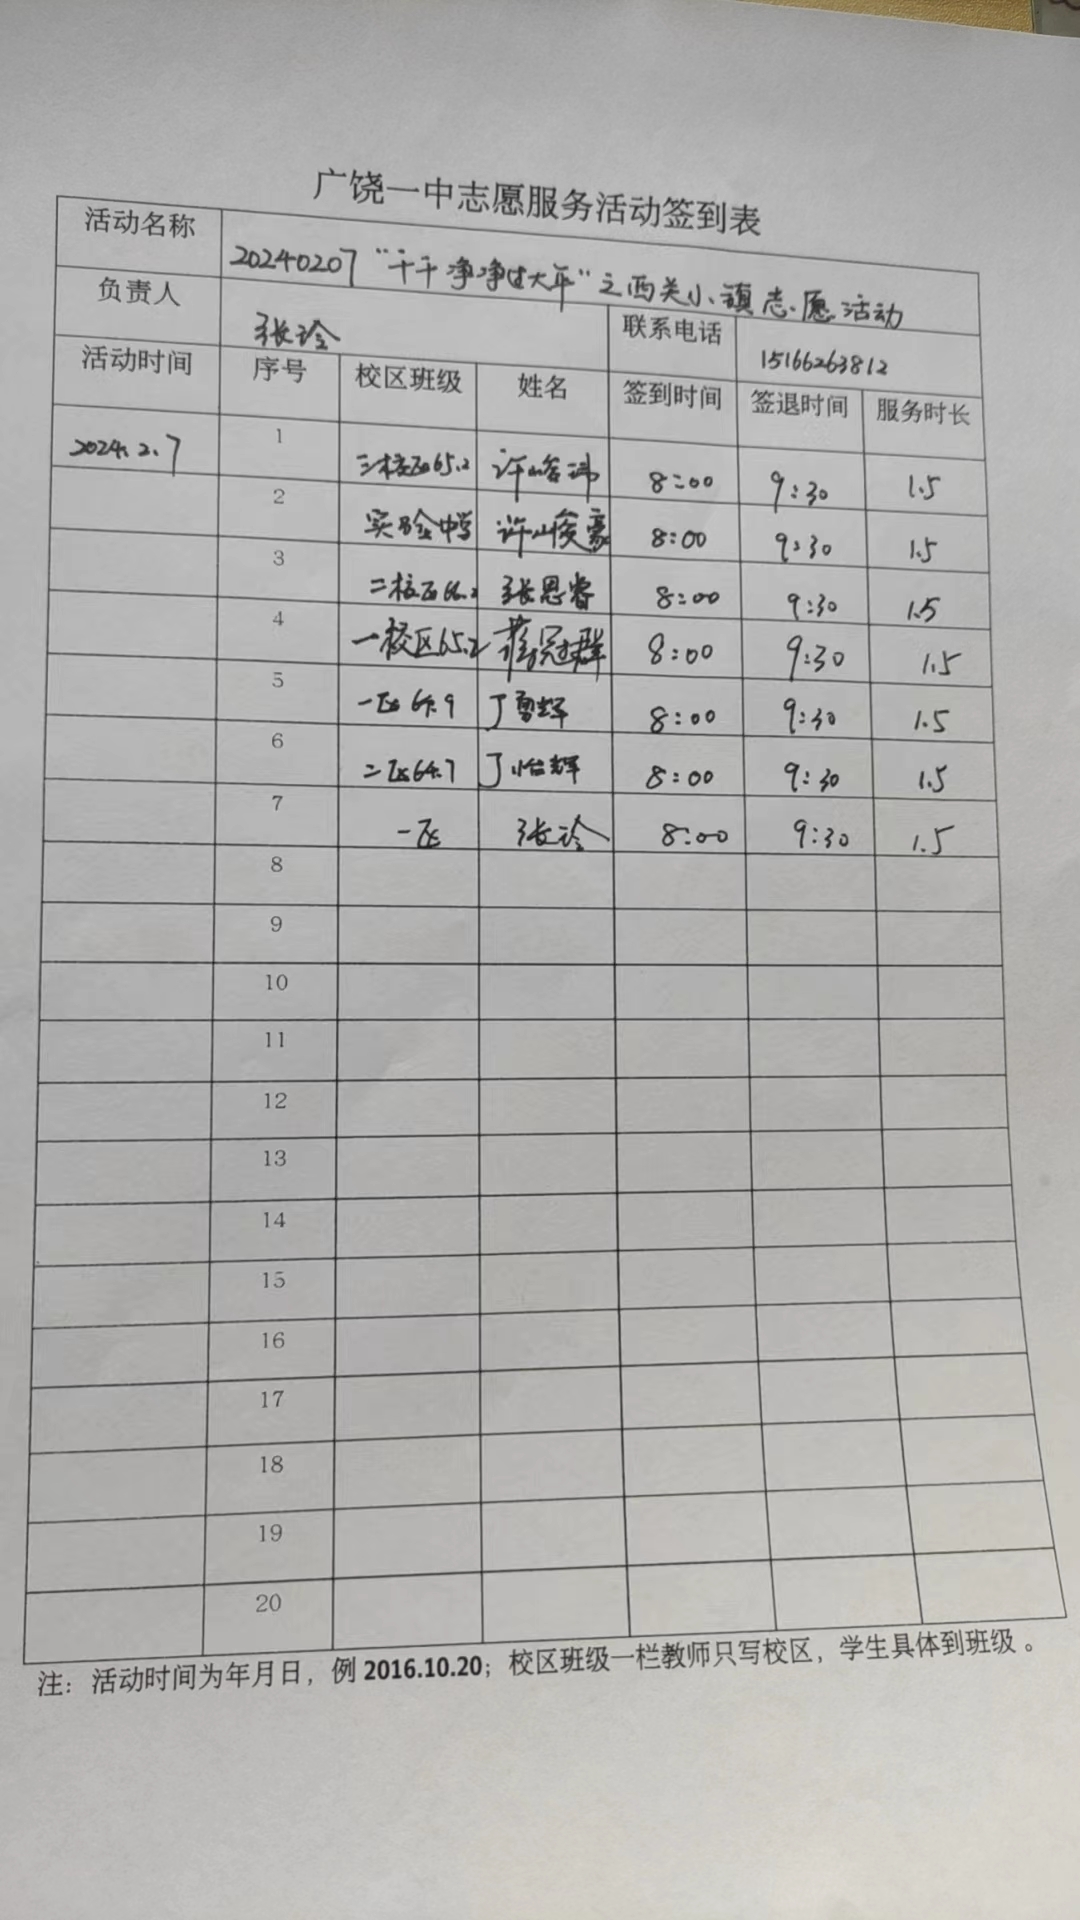 广饶一中志愿服务活动签到表
活动名称 20240207“干干净净过大年”之西关小镇志愿活动
负责人 张玲 联系电话 15166263812
活动时间 序号 校区班级 姓名 签到时间 签退时间 服务时长
2024.2.7 1 二校区65.2 许峪玮 8:00 9:30 1.5
2 实验中学 许峻豪 8:00 9:30 1.5
3 二校区66.2 张恩睿 8:00 9:30 1.5
4 一校区65.2 蒋冠群 8:00 9:30 1.5
5 一区64.9 丁勇辉 8:00 9:30 1.5
6 二区64.7 丁怡辉 8:00 9:30 1.5
7 一区 张玲 8:00 9:30 1.5
8
9
10
11
12
13
14
15
16
17
18
19
20
注：活动时间为年月日，例 2016.10.20；校区班级一栏教师只写校区，学生具体到班级。